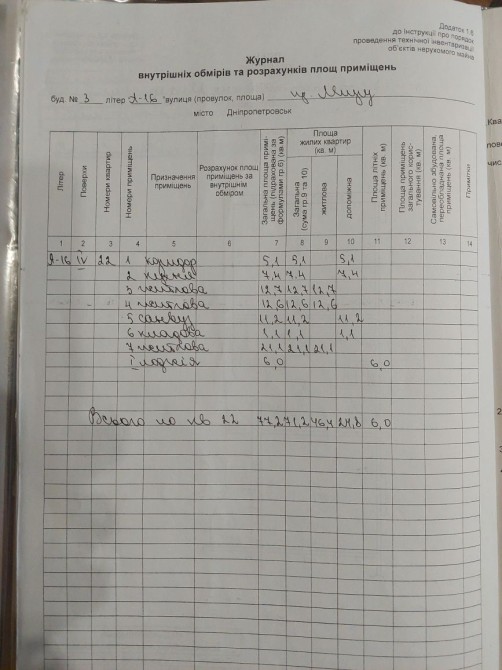 Додаток 1.6
до Інструкції про порядок
проведення технічної інвентаризації
об'єктів нерухомого майна
Журнал
внутрішніх обмірів та розрахунків площ приміщень
буд. № 3 літер Я-16 вулиця (провулок, площа) пр. Миру
місто Дніпропетровськ
Літер
Поверхи
Номери квартир
Номери приміщень
Призначення приміщень
Розрахунок площ приміщень за внутрішнім обміром
Загальна площа приміщень (підрахована за формулами гр.6) (кв.м)
Площа жилих квартир (кв. м)
Загальна (сума гр 9 та 10)
житлова
допоміжна
Площа літніх приміщень (кв. м)
Площа приміщень загального користування (кв. м)
Самовільно збудована, переобладнана площа приміщень (кв. м)
Примітки
1 2 3 4 5 6 7 8 9 10 11 12 13 14
Я-16 IV 22 1 коридор 5,1 5,1 5,1
2 кухня 7,4 7,4 7,4
3 житлова 12,7 12,7 12,7
4 житлова 12,6 12,6 12,6
5 санвуз 11,2 11,2 11,2
6 кладова 1,1 1,1 1,1
7 житлова 21,1 21,1 21,1
I лоджія 6,0 6,0
Всього по кв 22 77,2 71,2 46,4 24,8 6,0